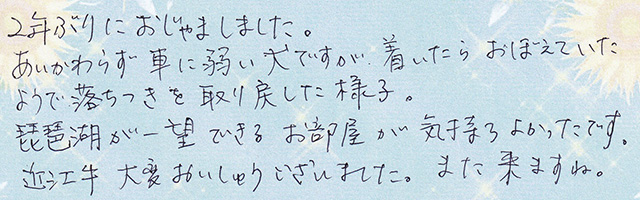 2年ぶりにおじゃましました。
あいかわらず車に弱い犬ですが、着いたらおぼえていた
ようで落ちつきを取り戻した様子。
琵琶湖が一望できるお部屋が気持ちよかったです。
近江牛大変おいしゅうございました。また来ますね。